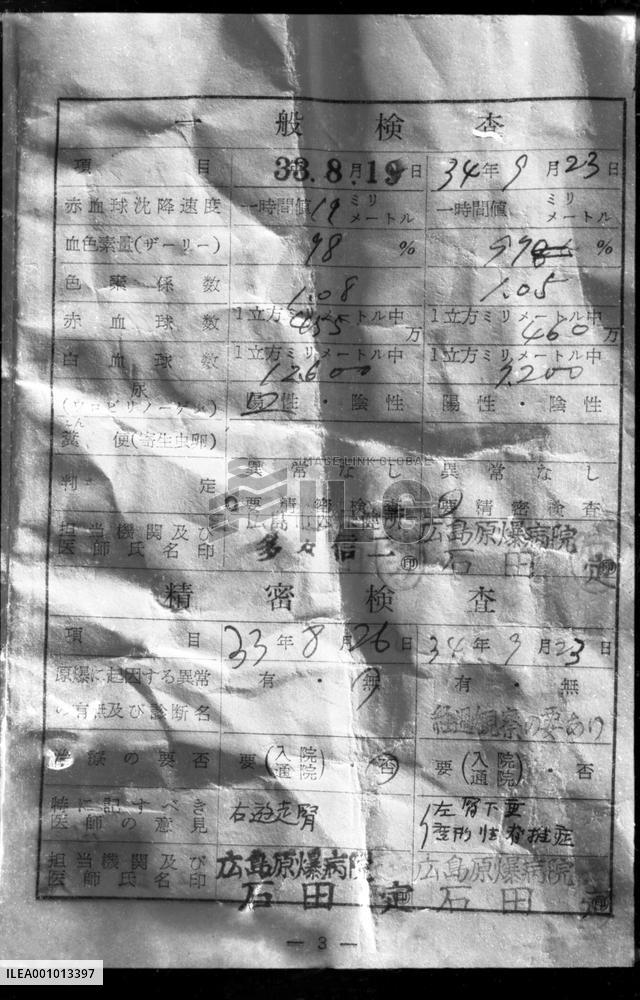 一般検査
項目 33.8.19 34年9月23日
赤血球沈降速度 一時間値 19 ミリメートル 一時間値 ミリメートル
血色素量(ザーリー) 98 % %
色素係数 1.08 1.05
赤血球数 1立方ミリメートル中 455万 1立方ミリメートル中 460万
白血球数 1立方ミリメートル中 12.600 1立方ミリメートル中 7.200
尿(ウロビリノーゲン) 陽性・陰性 陽性・陰性
糞便(寄生虫卵)
判定 異常なし 異常なし
要精密検査 要精密検査
IMAGE LINK GLOBAL
ILG
担当機関及び医師氏名印 広島原爆病院
石田 定 印
精密検査
項目 33年8月26日 34年9月23日
原爆に起因する異常の有無及び診断名 有・無 有・無
経過観察の要あり
治療の要否 要(入院 通院)・否 要(入院 通院)・否
特に記すべき医師の意見 右遊走腎 左腎下垂
変形性脊椎症
担当機関及び医師氏名印 広島原爆病院 広島原爆病院
石田 定 印 石田 定 印
— 3 —
ILEA001013397